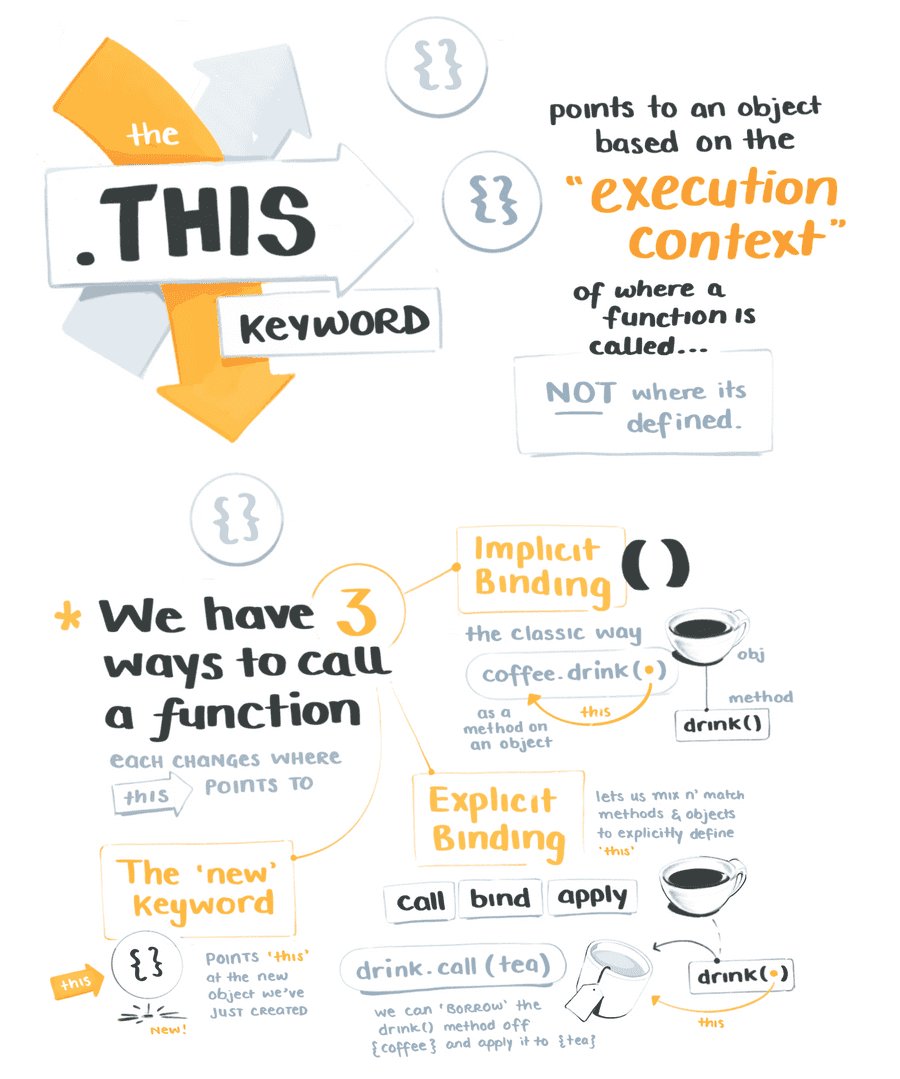 the
.THIS
KEYWORD
{}
{}
points to an object
based on the
"execution
context"
of where a
function is
called...
NOT where its
defined.
{}
* We have 3
ways to call
a function
EACH CHANGES WHERE
this POINTS TO
Implicit
Binding
()
the classic way
coffee.drink(•)
this
as a
method on
an object
obj
method
drink()
Explicit
Binding
lets us mix n' match
methods & objects
to explicitly define
'this'
call bind apply
drink.call(tea)
we can 'BORROW' the
drink() method off
{coffee} and apply it to {tea}
drink(•)
this
The 'new'
Keyword
this
{}
new!
POINTS 'this'
at the new
object we've
JUST CREATED